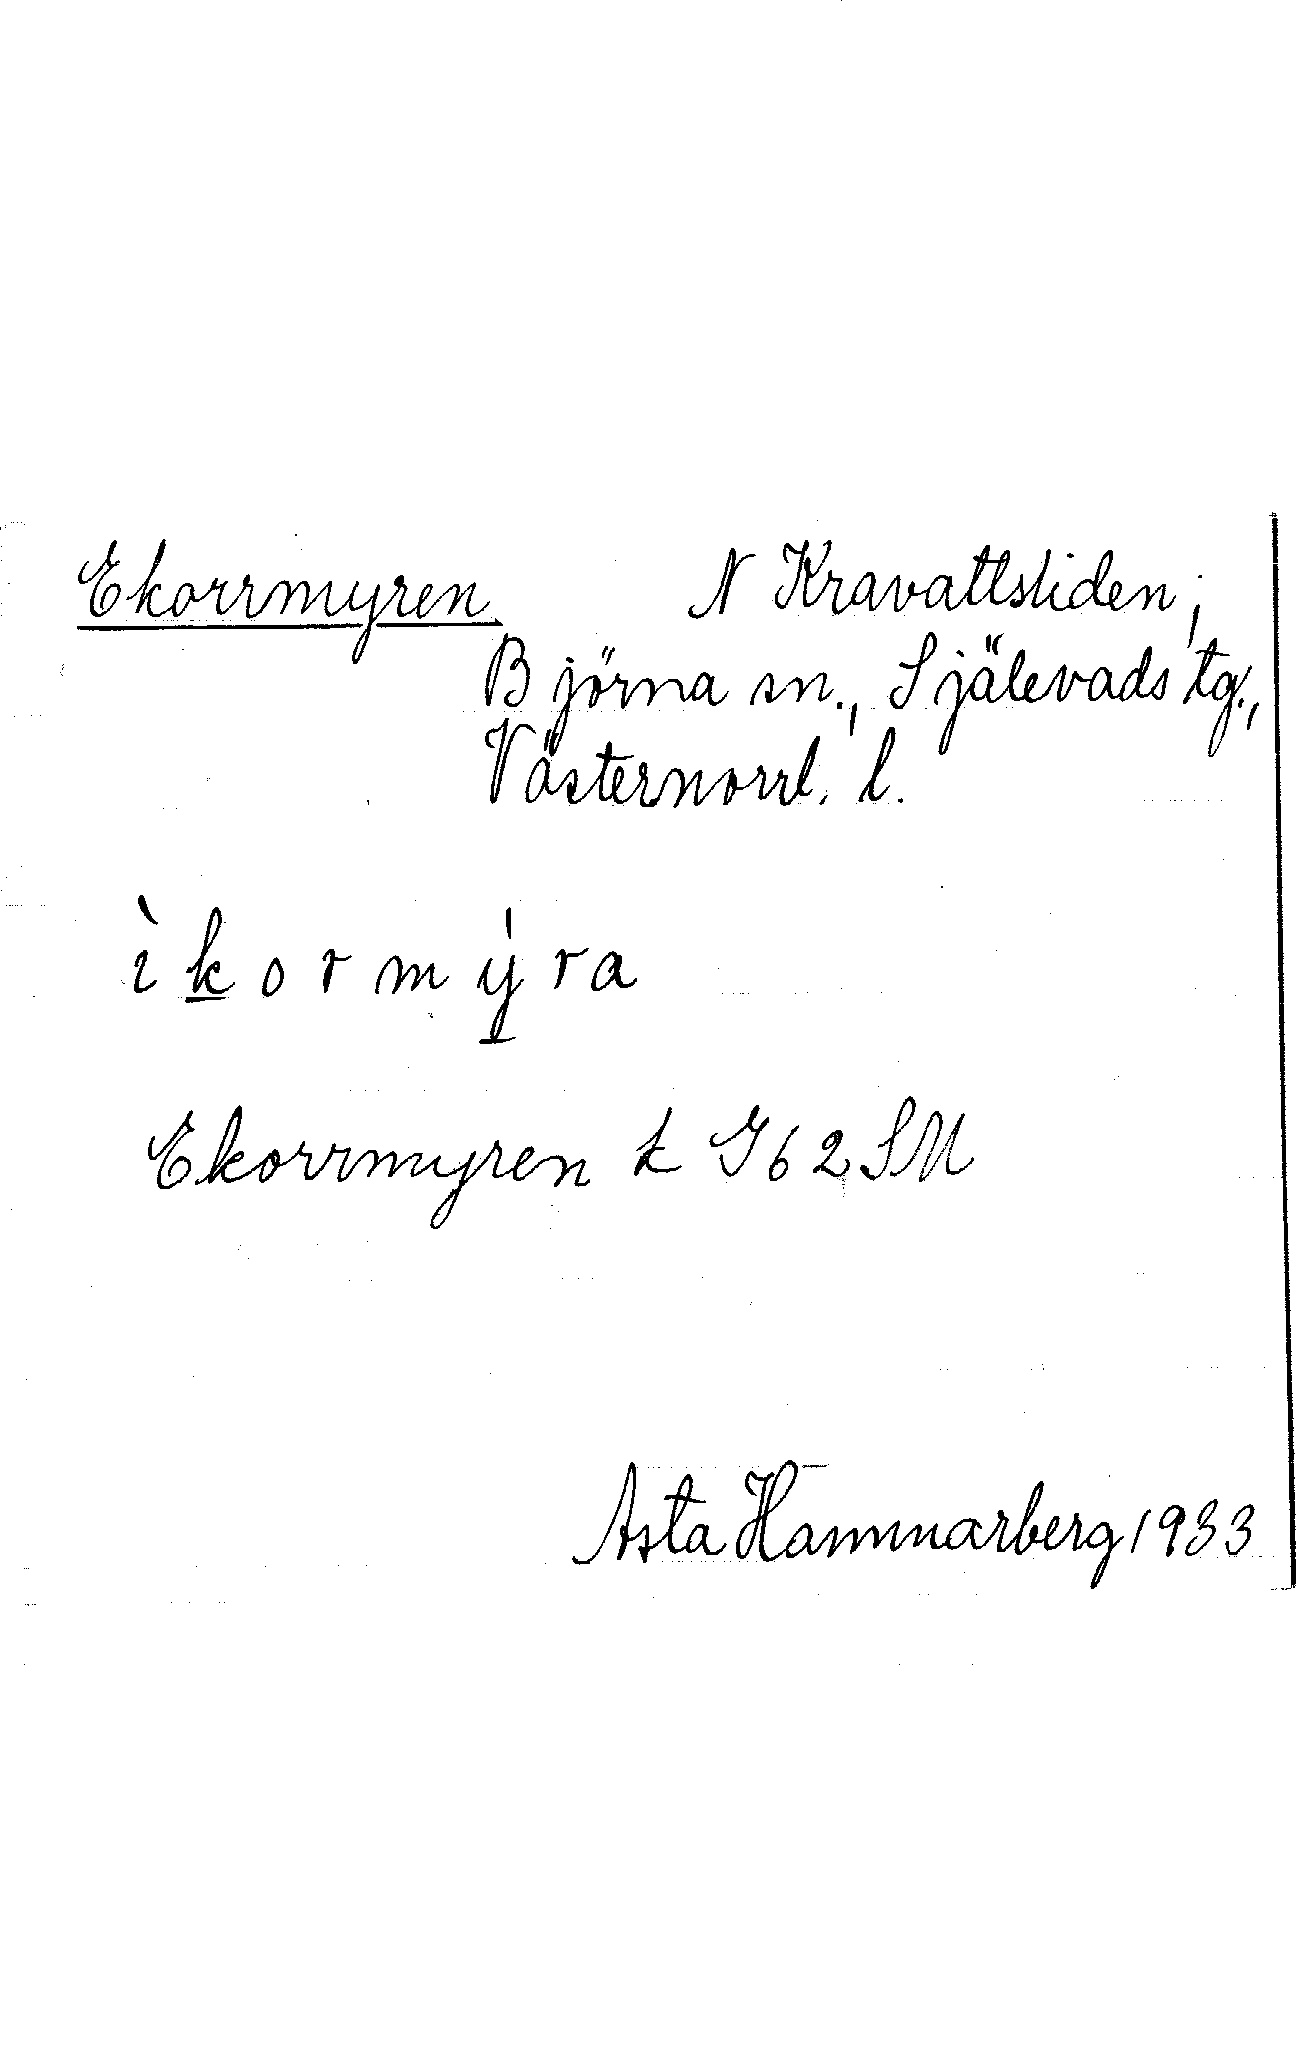 Ekorrmyren N Kravattsliden,
Björna sn., Själevads tg.,
Västernorrl. l.
ìkormýra
Ekorrmyren k G62SM
Asta Hammarberg 1933